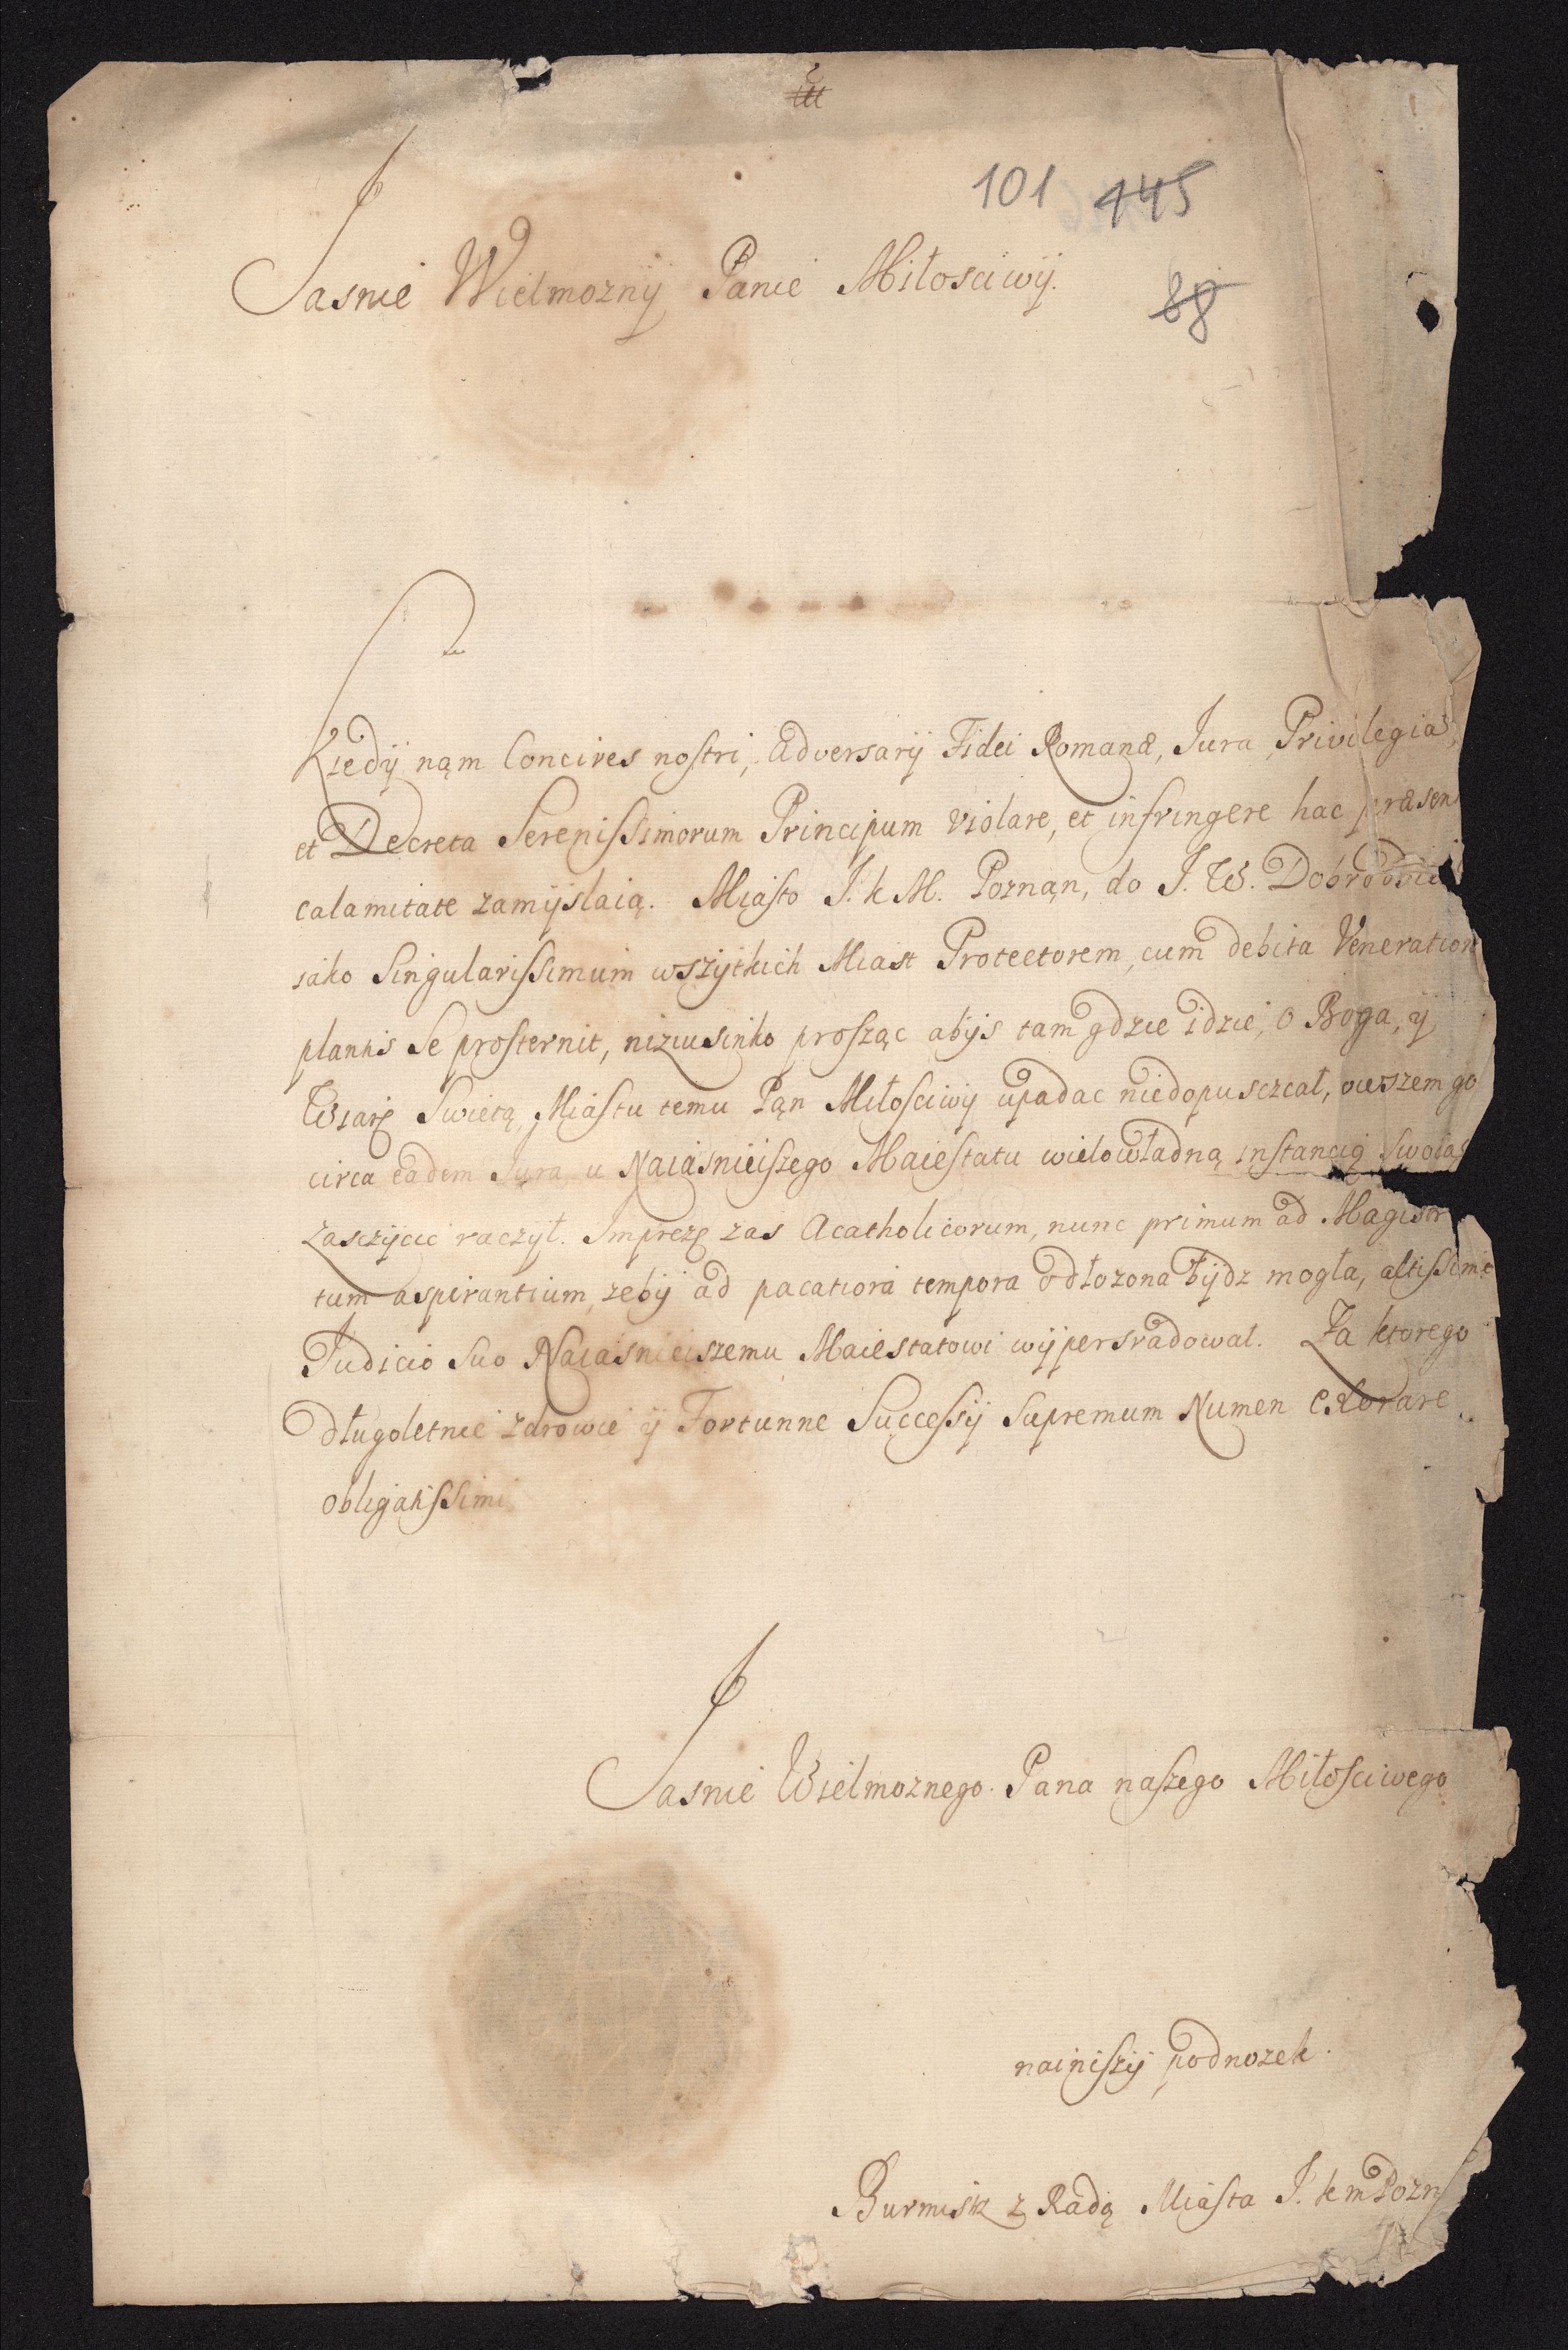 101 445
88
Jasnie Wielmoznÿ Panie Miłosciwÿ.
Kiedÿ nąm Concives nostri, Adversarÿ Fidei Romanæ, Jura, Privilegia,
et Decreta Serenissimorum Principum violare, et infringere hac præsen
calamitate zamÿslaią. Miasto J. k M. Poznąn, do J. W. Dobrodzie
iako Singularissimum wszÿtkich Miast Protectorem, cum debita Veneration
plantis se prosternit, niziusinko prosząc abÿs tam gdzie idzie, o Boga, ÿ
Wiarę Swietą, Miastu temu Pąn Miłosciwÿ upadac niedopusczcał, owszem go
circa eadem Jura u Naiasnieiszego Maiestatu wielowładną instancią swoią
zasczÿcic raczÿł. Imprezę zas Acatholicorum, nunc primum ad Magistr
tum aspirantium, zebÿ ad pacatiora tempora odłozona bÿdz mogła, altissime
Judicio suo Naiasnieiszemu Maiestatowi wÿpersvadował. Za ktorego
długoletnie zdrowie ÿ Fortunne Successÿ Supremum Numen exorare
obligatissimi
Jasnie Wielmoznego Pana naszego Miłosciwego
nainiszÿ podnozek.
Burmistz z Radą Miasta J. k m Pozn